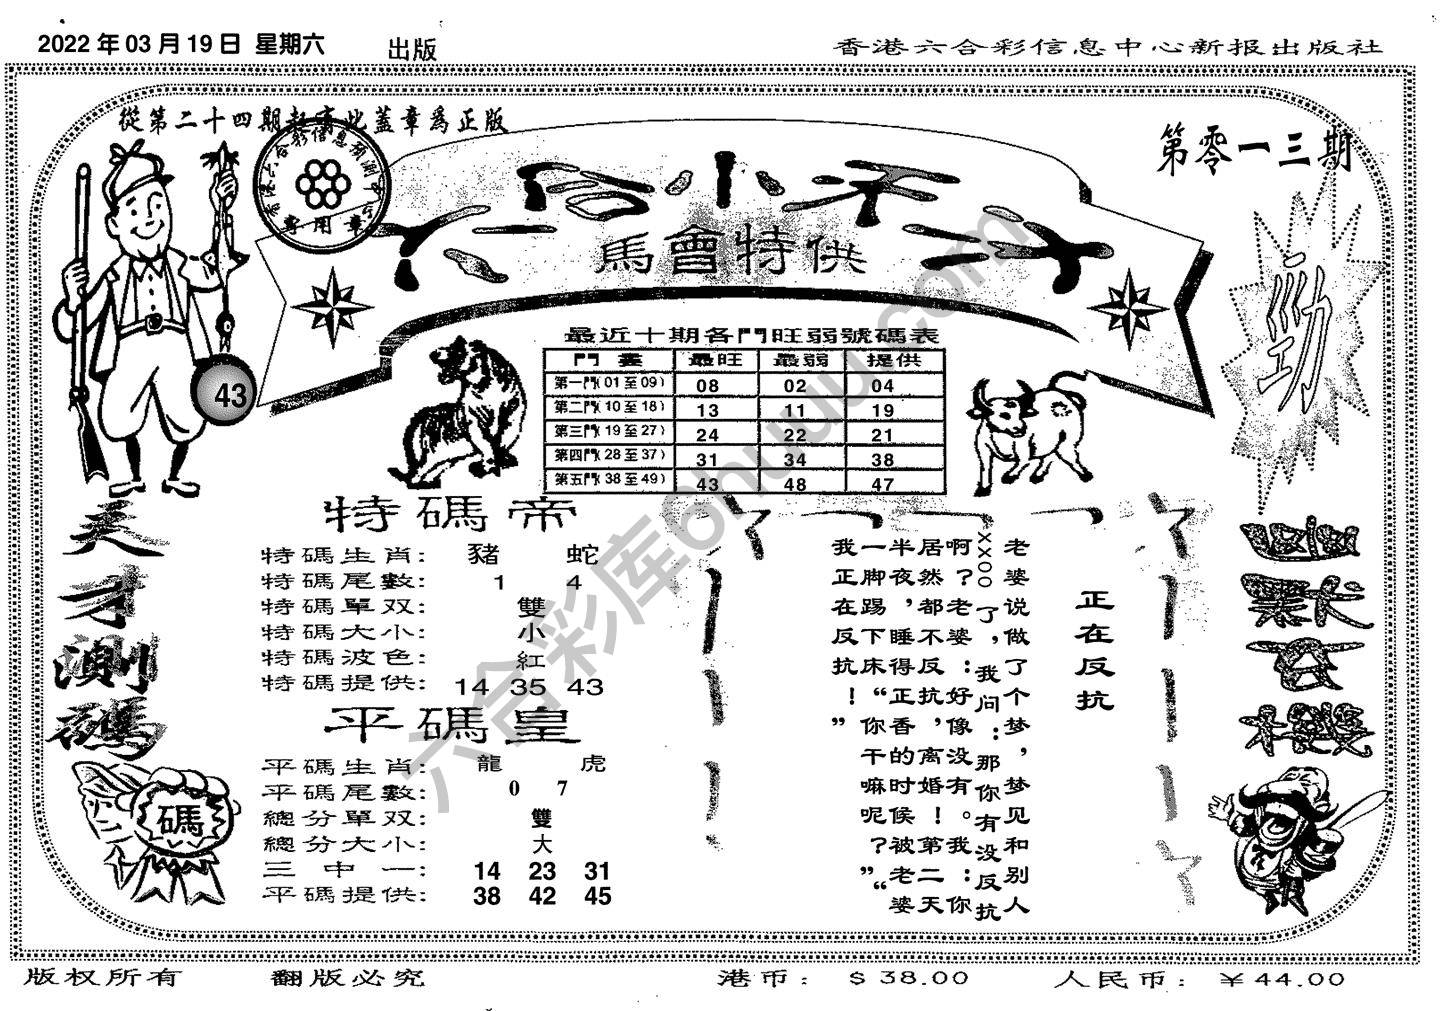 2022 年 03 月 19 日 星期六 出版
香港六合彩信息中心新报出版社
從第二十四期起有此蓋章爲正版
香港六合彩信息預測中心
專用章
第零一三期
馬會特供
勁
43
最近十期各門旺弱號碼表
最旺 最弱 提供
第一門(01至09) 08 02 04
第二門(10至18) 13 11 19
第三門(19至27) 24 22 21
第四門(28至37) 31 34 38
第五門(38至49) 43 48 47
天才測碼
碼
特碼帝
特碼生肖: 豬 蛇
特碼尾數: 1 4
特碼單双: 雙
特碼大小: 小
特碼波色: 紅
特碼提供: 14 35 43
平碼皇
平碼生肖: 龍 虎
平碼尾數: 0 7
總分單双: 雙
總分大小: 大
三中一: 14 23 31
平碼提供: 38 42 45
正在反抗
老婆说做了个梦，梦见和别人
xxoo了，我问：那你有没反抗
啊？老婆：好像没有。我：你
居然都不反抗，离婚！第二天
半夜，睡得正香的时候被老婆
一脚踢下床“你干嘛呢？”“
我正在反抗！”
六合彩库6huuu.com
版权所有 翻版必究 港币：$38.00 人民币：￥44.00